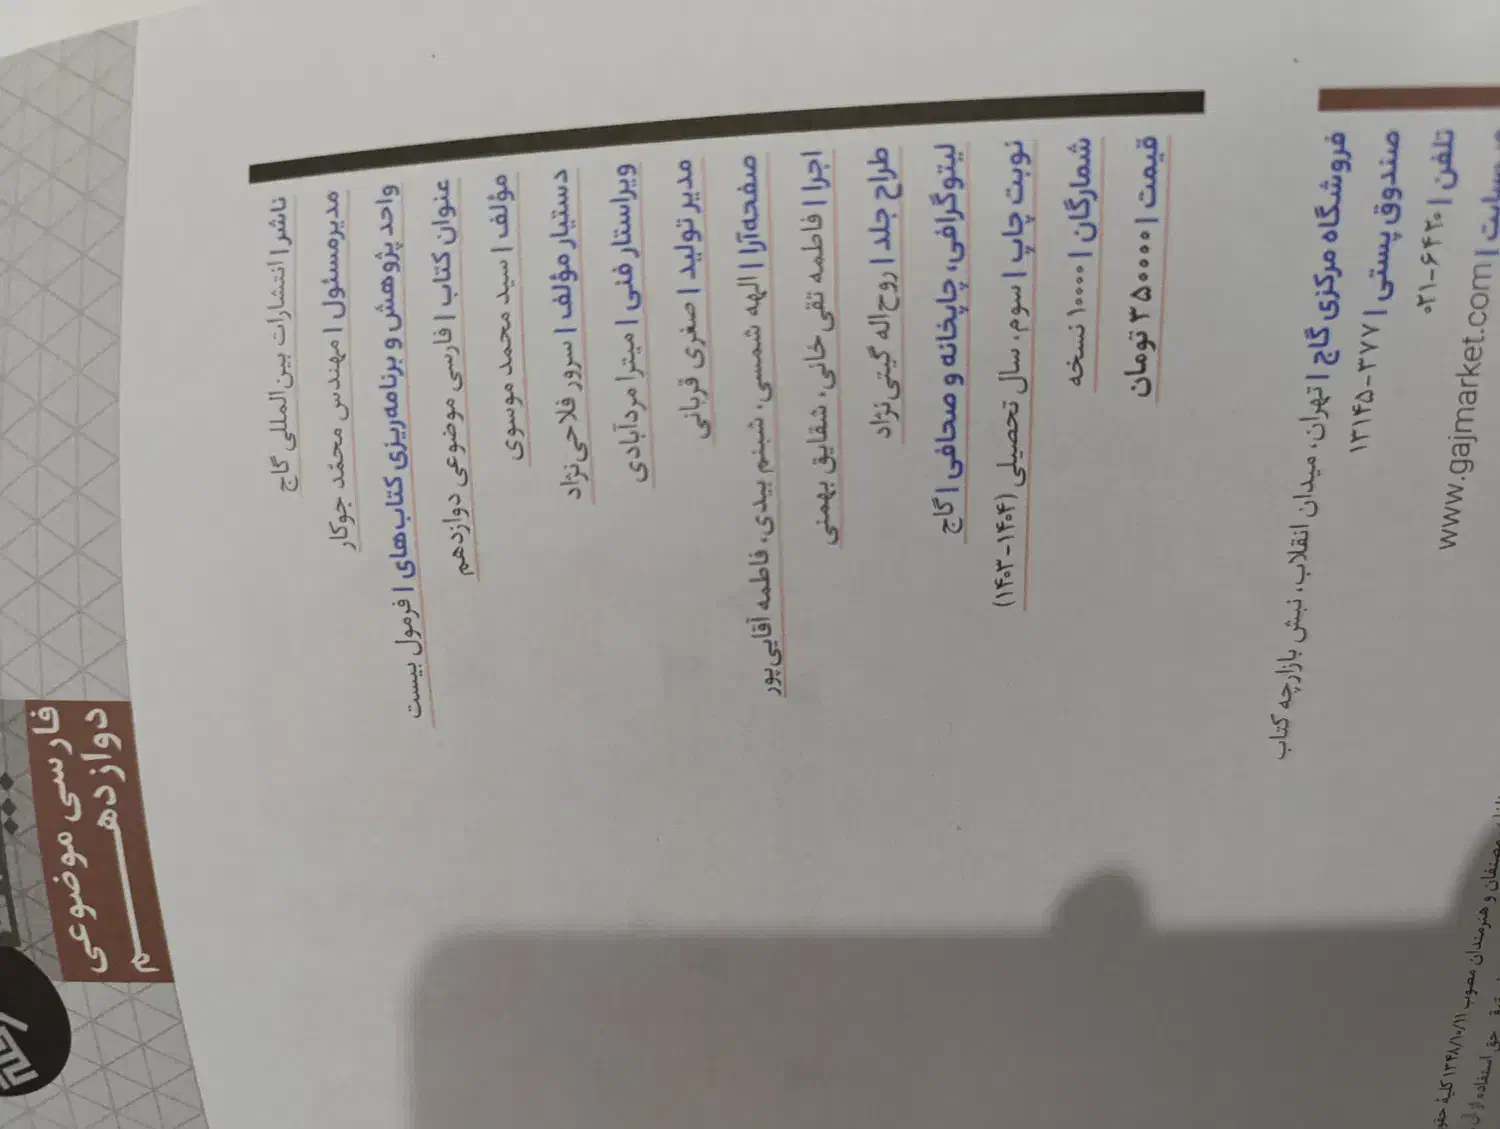 فارسی موضوعی
دوازدهم
ناشر | انتشارات بین‌المللی گاج
مدیرمسئول | مهندس محمد جوکار
واحد پژوهش و برنامه‌ریزی کتاب‌های | فرمول بیست
عنوان کتاب | فارسی موضوعی دوازدهم
مؤلف | سید محمد موسوی
دستیار مؤلف | سرور فلاحی‌نژاد
ویراستار فنی | میترا مردآبادی
مدیر تولید | صغری قربانی
صفحه‌آرا | الهه شمسی، شبنم بیدی، فاطمه آقایی‌پور
اجرا | فاطمه تقی خانی، شقایق بهمنی
طراح جلد | روح‌اله گیتی‌نژاد
لیتوگرافی، چاپخانه و صحافی | گاج
نوبت چاپ | سوم، سال تحصیلی (۱۴۰۴-۱۴۰۳)
شمارگان | ۱۰۰۰۰ نسخه
قیمت | ۳۵۰۰۰۰ تومان
فروشگاه مرکزی گاج | تهران، میدان انقلاب، نبش بازارچه کتاب
صندوق پستی | ۳۷۷-۱۳۱۴۵
تلفن | ۶۴۲۰-۰۲۱
www.gajmarket.com |
مصنفان و هنرمندان مصوب ۱۳۴۸/۱۰/۱۱ کلیهٔ
حق استفاده از